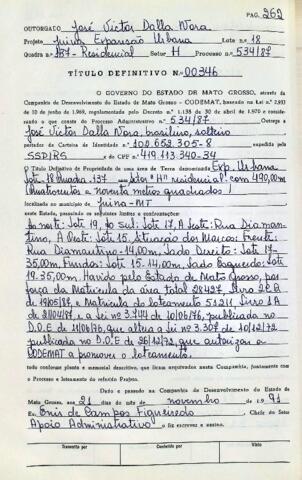 PAG. 262
OUTORGADO José Victor Dalla Nora
Projeto Juina Expansão Urbana Lote n.º 18
Quadra n.º 137 - Residencial Setor H Processo n.º 534/87
TÍTULO DEFINITIVO N.º 00346
O GOVERNO DO ESTADO DE MATO GROSSO, através da
Companhia de Desenvolvimento do Estado de Mato Grosso - CODEMAT, baseado na Lei n.º 2.933
de 10 de junho de 1969, regulamentado pelo Decreto n.º 1.138 de 30 de abril de 1970 e considerando
o que consta do Processo Administrativo n.º 534/87 expede a
José Victor Dalla Nora, brasileiro, solteiro
portador da Carteira de Identidade n.º 100.653.305-8 expedida por
SSP/RS e do CPF n.º 419.113.340-34
o Título Definitivo de Propriedade de uma área de Terra denominada Exp. Urbana
Lote - 18 Quadra, 137 Setor "H" residencial com 490,00m²
(Quatrocentos e noventa metros quadrados)
no município de Juina-MT
neste Estado, passando os seguintes limites e confrontações:
Ao norte: Lote 19, Ao Sul: Lote 17, A Leste: Rua Diaman-
tino, A Oeste: Lote 15. Situação dos Marcos: Frente
Rua Diamantino = 14,00m, Lado Direito: Lote 17-
35,00m, Fundos: Lote 15- 14,00m, Lado Esquerdo: Lote
19-35,00m. Havido pelo Estado de Mato Grosso, por
força da Matrícula da área total 28427, Livro 2CA
de 19/05/87, e Matrícula do loteamento 51211, Livro 1A
de 21/04/87, e a lei nº 3.744 de 10/06/76, publicada no
D.O.E de 11/06/76, que altera a lei nº 3.307 de 10/12/72
publicada no D.O.E de 26/12/72, que autorizou a
CODEMAT a promover o loteamento.
tudo conforme planta e memorial descritivo, que ficam arquivados nesta Companhia, juntamente com
o Processo e loteamento do referido Projeto.
Dado e passado na Companhia de Desenvolvimento do Estado de
Mato Grosso, aos 21 dias do mês de novembro de 19 91
Eu, Enis de Campos Figueiredo, Chefe do Setor
Apoio Administrativo o fiz escrever e assino.
Transcrito por Conferido por Visto